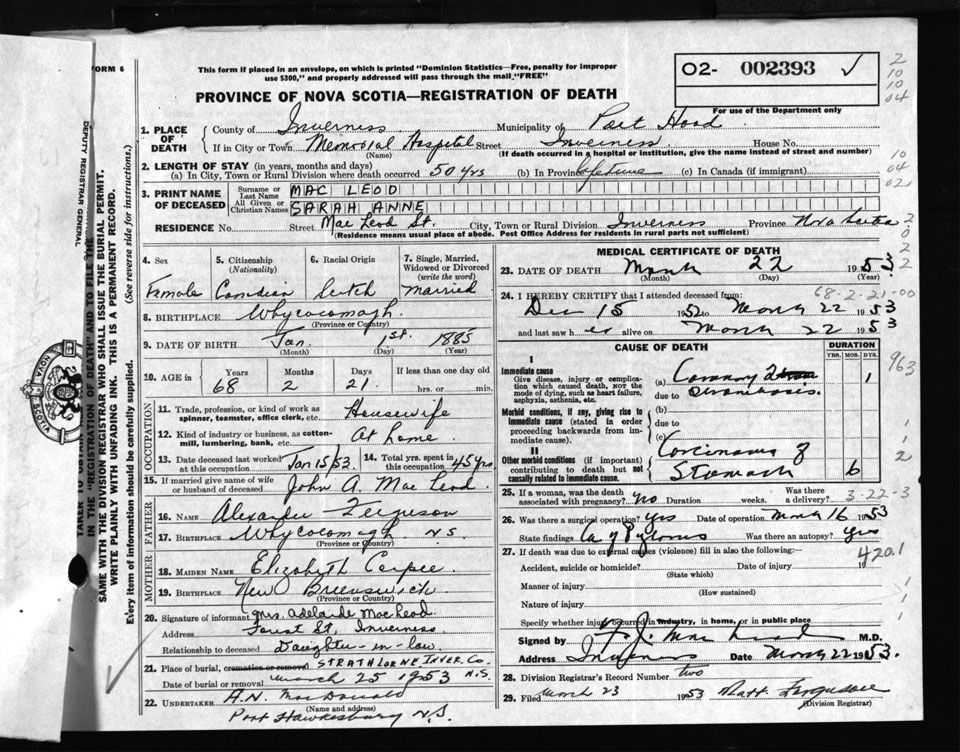 FORM 6
This form if placed in an envelope, on which is printed "Dominion Statistics—Free, penalty for improper
use $300," and properly addressed will pass through the mail "FREE"
PROVINCE OF NOVA SCOTIA—REGISTRATION OF DEATH
02- 002393 ✓
For use of the Department only
2
10
10
04
10
04
02
1. PLACE OF DEATH
County of Inverness Municipality of Port Hood
If in City or Town Memorial Hospital Street Inverness House No.
(Name) (If death occurred in a hospital or institution, give the name instead of street and number)
2. LENGTH OF STAY (in years, months and days)
(a) In City, Town or Rural Division where death occurred 50 yrs (b) In Province lifetime (c) In Canada (if immigrant)
3. PRINT NAME OF DECEASED
Surname or Last Name MAC LEOD
All Given or Christian Names SARAH ANNE
RESIDENCE No. Street Mac Leod St. City, Town or Rural Division Inverness Province Nova Scotia
(Residence means usual place of abode. Post Office Address for residents in rural parts not sufficient)
4. Sex
Female
5. Citizenship
(Nationality)
Canadian
6. Racial Origin
Scotch
7. Single, Married,
Widowed or Divorced
(write the word)
married
8. BIRTHPLACE Whycocomagh.
(Province or Country)
9. DATE OF BIRTH Jan. 1st. 1885
(Month) (Day) (Year)
10. AGE in
Years Months Days If less than one day old
68 2 21. hrs. or min.
OCCUPATION
11. Trade, profession, or kind of work as
spinner, teamster, office clerk, etc. Housewife
12. Kind of industry or business, as cotton-
mill, lumbering, bank, etc. At home.
13. Date deceased last worked
at this occupation Jan 15/53
14. Total yrs. spent in
this occupation 45 yrs
15. If married give name of wife
or husband of deceased John A. Mac Leod.
FATHER
16. NAME Alexander Ferguson
17. BIRTHPLACE Whycocomagh N.S.
(Province or Country)
MOTHER
18. MAIDEN NAME Elizabeth
19. BIRTHPLACE New Brunswick
(Province or Country)
20. Signature of informant Mrs. Adelaide MacLeod.
Address Forest St, Inverness.
Relationship to deceased Daughter-in-law.
21. Place of burial, cremation or removal STRATHLORNE INVER. CO.
Date of burial or removal March 25 1953 N.S.
22. UNDERTAKER A.N. MacDonald
(Name and address)
Port Hawkesbury N.S.
MEDICAL CERTIFICATE OF DEATH
23. DATE OF DEATH March 22 1953.
(Month) (Day) (Year)
68-2-21-00
24. I HEREBY CERTIFY that I attended deceased from:
Dec 15 1952 to March 22 1953
and last saw her alive on March 22 1953
CAUSE OF DEATH
DURATION
YRS. MOS. DYS.
I
Immediate cause
Give disease, injury or complica-
tion which caused death, NOT the
mode of dying, such as heart failure,
asphyxia, asthenia, etc.
(a) Coronary
due to thrombosis. 1
Morbid conditions, if any, giving rise to
immediate cause (stated in order
proceeding backwards from im-
mediate cause).
(b)
due to
(c)
II
Other morbid conditions (if important)
contributing to death but not
causally related to immediate cause.
Carcinoma of
Stomach 6
963
25. If a woman, was the death
associated with pregnancy? no Duration weeks. Was there
a delivery?
3-22-3
26. Was there a surgical operation? yes Date of operation March 16 1953
State findings Ca of Pylorus Was there an autopsy? yes
27. If death was due to external causes (violence) fill in also the following:—
Accident, suicide or homicide? Date of injury 19
(State which)
420.1
Manner of injury
(How sustained)
Nature of injury
Specify whether injury occurred in industry, in home, or in public place
Signed by F. J. Mac Leod M.D.
Address Inverness Date March 22 1953.
28. Division Registrar's Record Number two
29. Filed March 23 1953 Matt. Ferguson
(Division Registrar)
DEPUTY REGISTRAR GENERAL
IN THE "REGISTRATION OF DEATH" AND TO FILE THE
SAME WITH THE DIVISION REGISTRAR WHO SHALL ISSUE THE BURIAL PERMIT.
WRITE PLAINLY WITH UNFADING INK. THIS IS A PERMANENT RECORD.
Every item of information should be carefully supplied. (See reverse side for instructions.)